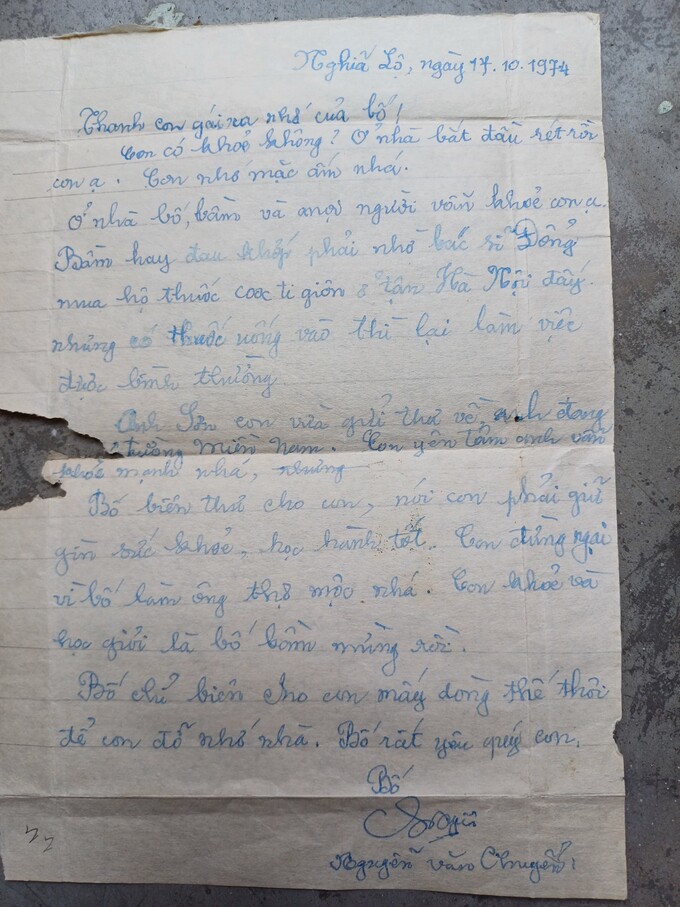 Nghĩa Lộ, ngày 17.10.1974
Thanh con gái xa nhớ của bố!
Con có khoẻ không? Ở nhà bắt đầu rét rồi
con ạ. Con nhớ mặc ấm nhá.
Ở nhà bố, bầm và mọi người vẫn khoẻ con ạ.
Bầm hay đau khớp phải nhờ bác sĩ Đổng
mua hộ thuốc cooc ti giôn ở tận Hà Nội đấy.
nhưng có thuốc uống vào thì lại làm việc
được bình thường
Anh Sơn con vừa gửi thư về anh đang
trường miền Nam. Con yên tâm anh vẫn
khoẻ mạnh nhá, nhưng
Bố biên thư cho con, nói con phải giữ
gìn sức khoẻ, học hành tốt. Con đừng ngại
vì bố làm ông thợ mộc nhá. Con khoẻ và
học giỏi là bố bầm mừng rồi.
Bố chỉ biên cho con mấy dòng thế thôi
để con đỡ nhớ nhà. Bố rất yêu quý con.
Bố
Nguyễn Văn Chuyển